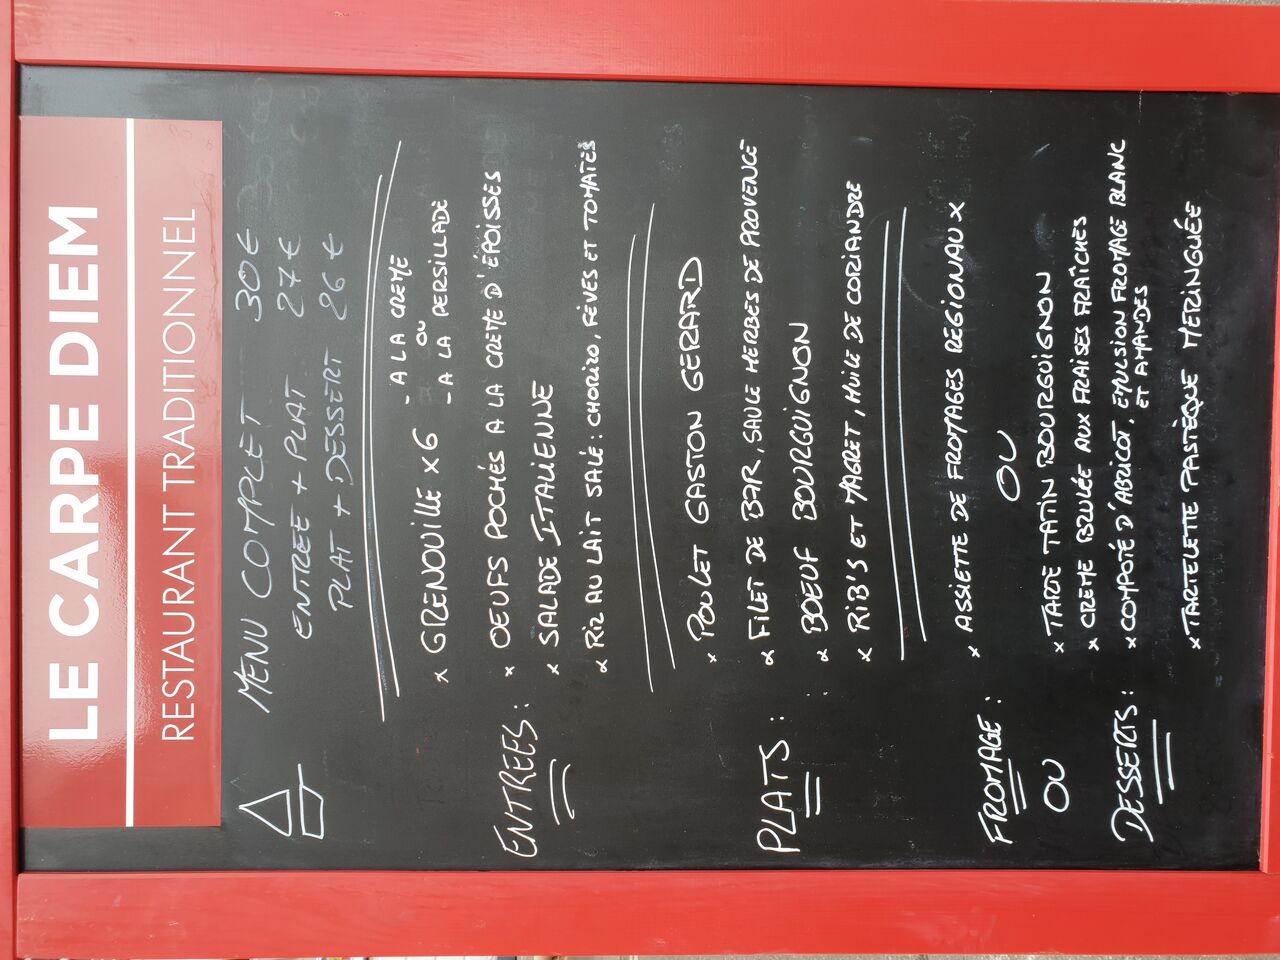 LE CARPE DIEM
RESTAURANT TRADITIONNEL
MENU COMPLET 30€
ENTRÉE + PLAT 27€
PLAT + DESSERT 26€
- A LA CREME
x GRENOUILLE x6 OU
- A LA PERSILLADE
ENTREES : x OEUFS POCHÉS A LA CREME D'ÉPOISSES
x SALADE ITALIENNE
x RIZ AU LAIT SALÉ : CHORIZO, FÈVES ET TOMATES
x POULET GASTON GERARD
PLATS : x FILET DE BAR, SAUCE HERBES DE PROVENCE
x BOEUF BOURGUIGNON
x RIB'S ET MAGRET, HUILE DE CORIANDRE
FROMAGE : x ASSIETTE DE FROMAGES REGIONAUX
OU OU
x TARTE TATIN BOURGUIGNON
x CREME BRULÉE AUX FRAISES FRAÎCHES
DESSERTS : x COMPOTÉ D'ABRICOT, EMULSION FROMAGE BLANC
ET AMANDES
x TARTELETTE PASTÈQUE MERINGUÉE